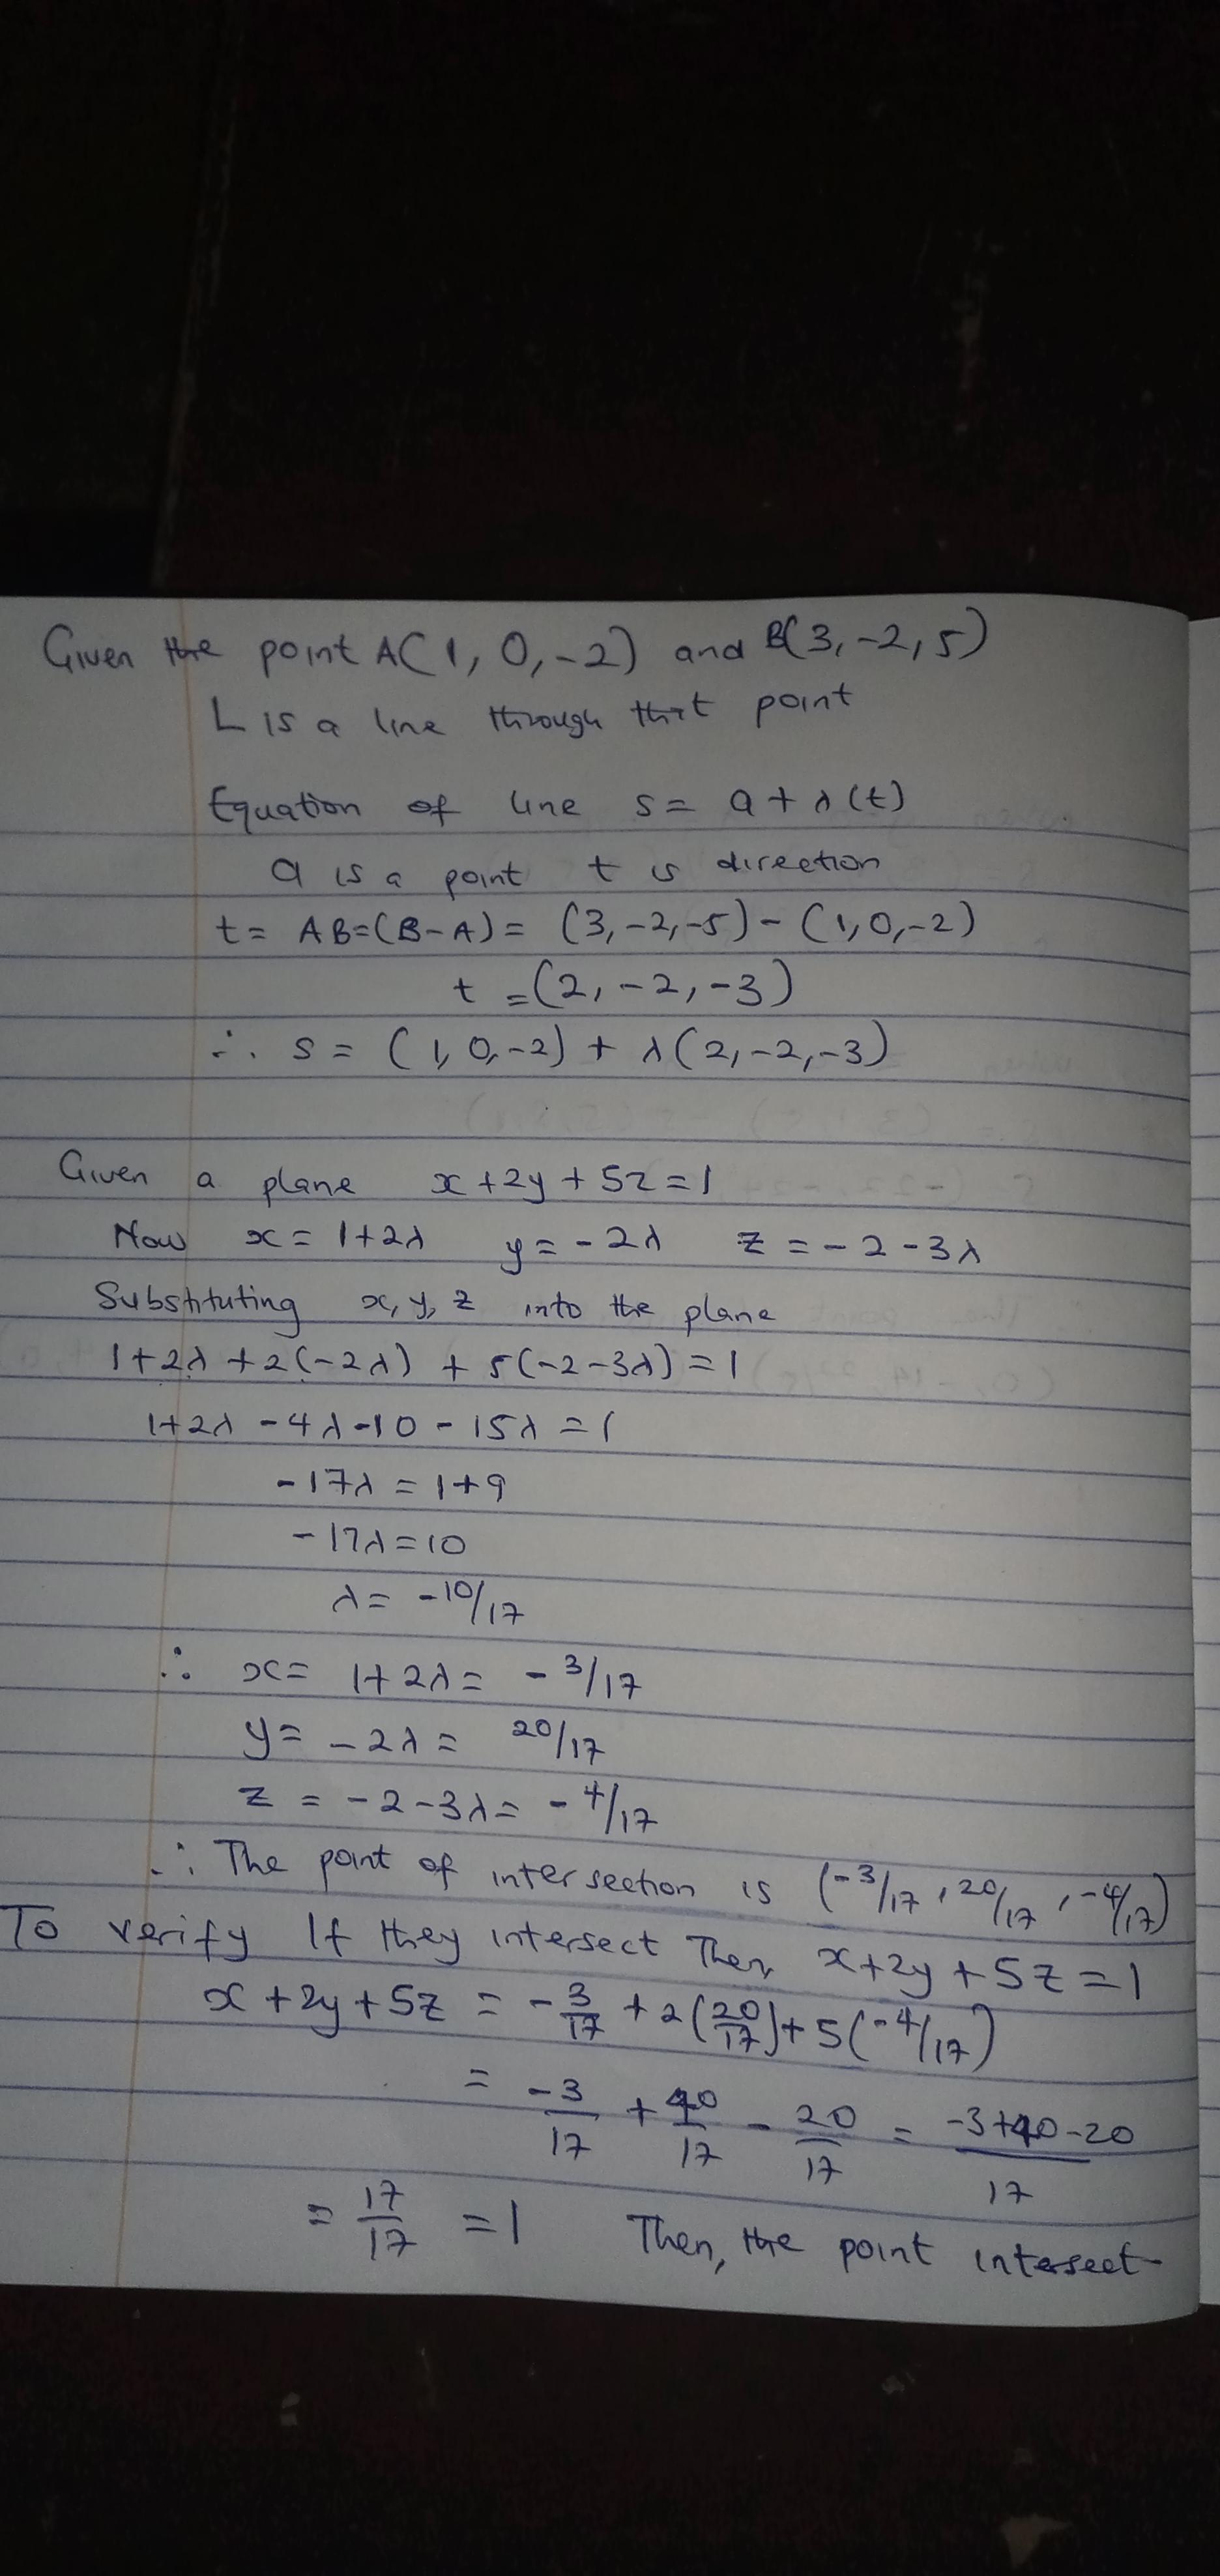 Given the point A(1, 0, -2) and B(3, -2, 5)
L is a line through that point
Equation of line s = a + λ(t)
a is a point t is direction
t = AB = (B - A) = (3, -2, -5) - (1, 0, -2)
t = (2, -2, -3)
∴ s = (1, 0, -2) + λ(2, -2, -3)
Given a plane x + 2y + 5z = 1
Now x = 1 + 2λ y = - 2λ z = - 2 - 3λ
Substituting x, y, z into the plane
1 + 2λ + 2(-2λ) + 5(-2 - 3λ) = 1
1 + 2λ - 4λ - 10 - 15λ = 1
- 17λ = 1 + 9
- 17λ = 10
λ = - 10/17
∴ x = 1 + 2λ = - 3/17
y = - 2λ = 20/17
z = - 2 - 3λ = - 4/17
∴ The point of intersection is (-3/17, 20/17, -4/17)
To verify If they intersect Then x + 2y + 5z = 1
x + 2y + 5z = - 3/17 + 2(20/17) + 5(-4/17)
= -3/17 + 40/17 - 20/17 = -3+40-20/17
= 17/17 = 1 Then, the point intersect